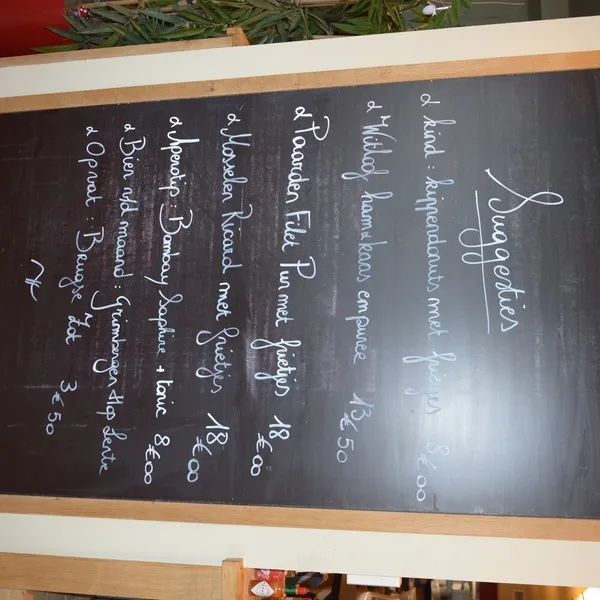 Suggesties
α kind: kippendonuts met frietjes 8€00
α Witlof ham & kaas en puree 13€50
α Paarden Filet Pur met frietjes 18€00
α Mosselen Ricard met frietjes 18€00
α Aperotip: Bombay Saphire + tonic 8€00
α Bier v/d maand: Grimbergen Hop Lente
α Op vat: Brugse Zot 3€50